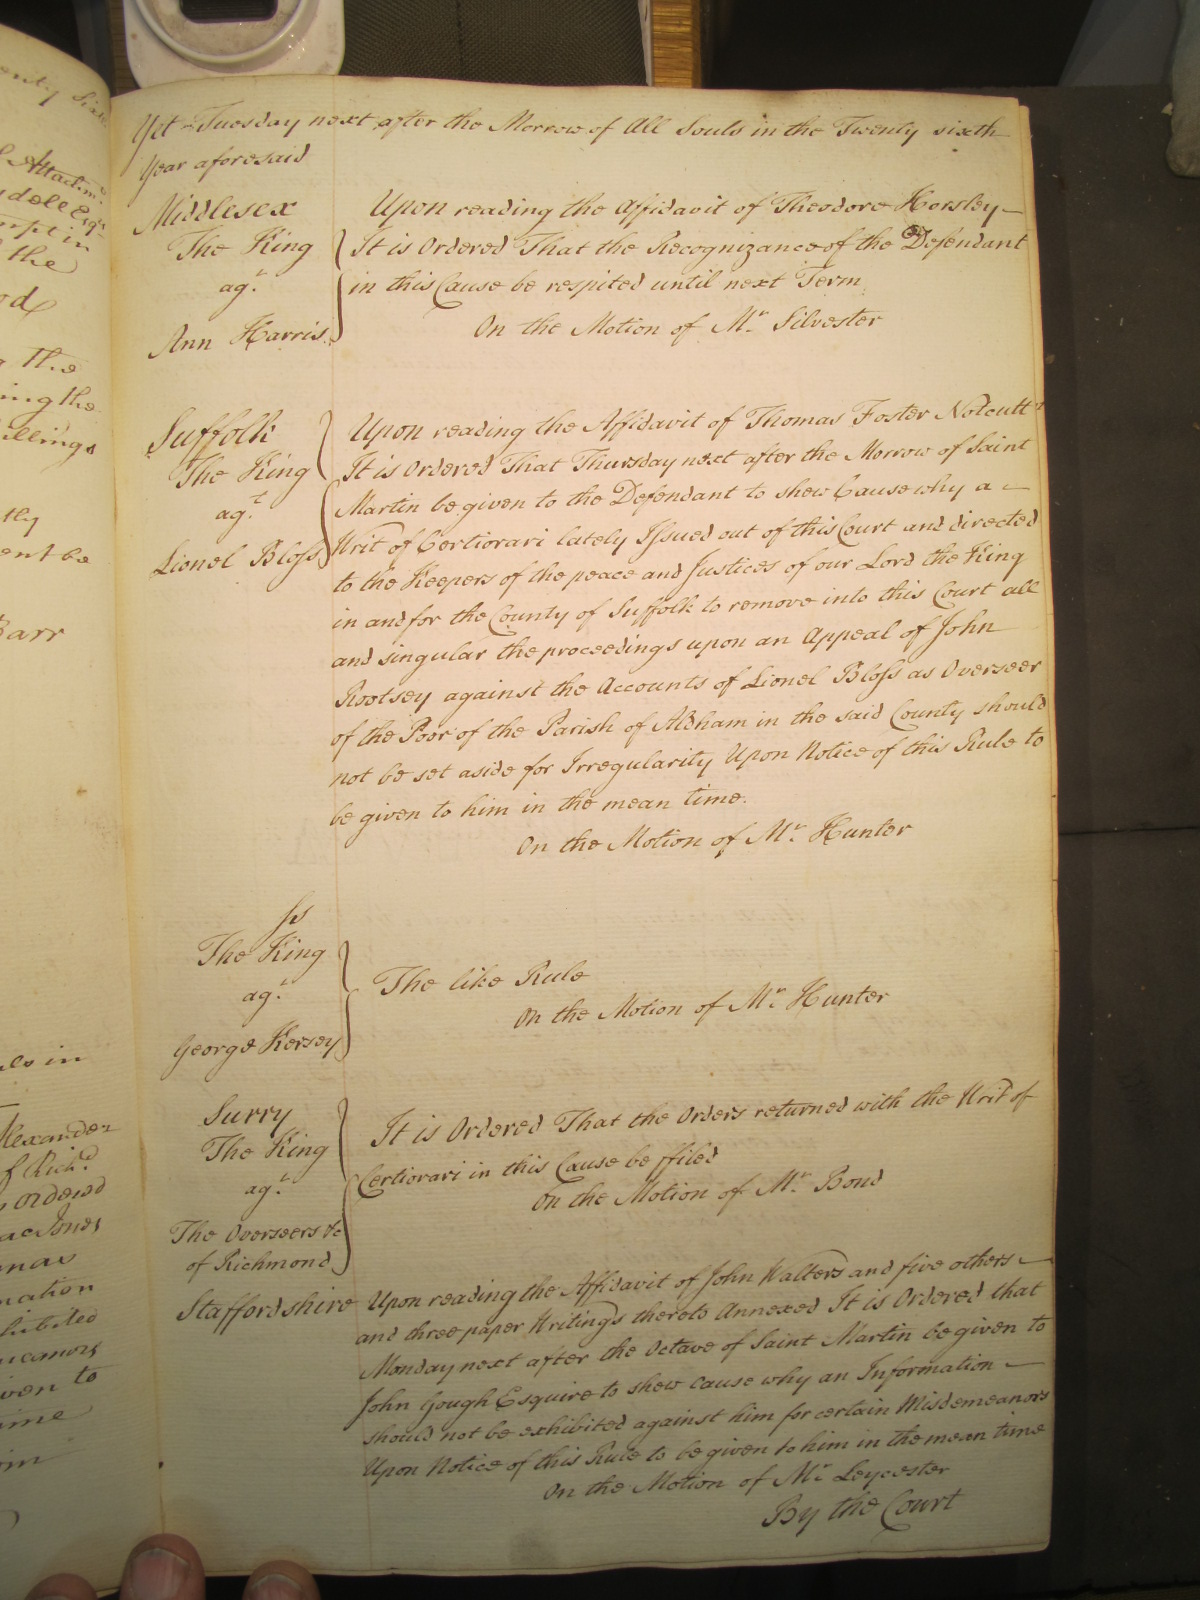 Yet Tuesday next after the Morrow of All Souls in the Twenty sixth
Year aforesaid
Middlesex
The King
agt.
Ann Harris
Upon reading the Affidavit of Theodore Horsley
It is Ordered That the Recognizance of the Defendant
in this Cause be respited until next Term
On the Motion of Mr. Silvester
Suffolk
The King
agt.
Lionel Bloss
Upon reading the Affidavit of Thomas Foster Notcutt
It is Ordered That Thursday next after the Morrow of Saint
Martin be given to the Defendant to shew Cause why a
Writ of Certiorari lately Issued out of this Court and directed
to the Keepers of the peace and Justices of our Lord the King
in and for the County of Suffolk to remove into this Court all
and singular the proceedings upon an Appeal of John
Rootsey against the Accounts of Lionel Bloss as Overseer
of the Poor of the Parish of Aldham in the said County should
not be set aside for Irregularity Upon Notice of this Rule to
be given to him in the mean time.
On the Motion of Mr. Hunter
Ss
The King
agt.
George Kersey
The like Rule
On the Motion of Mr. Hunter
Surry
The King
agt.
The Overseers &c
of Richmond
It is Ordered That the Orders returned with the Writ of
Certiorari in this Cause be ffiled
On the Motion of Mr. Bond
Staffordshire
Upon reading the Affidavit of John Walters and five others
and three paper Writings thereto Annexed It is Ordered that
Monday next after the Octave of Saint Martin be given to
John Gough Esquire to shew cause why an Information
should not be exhibited against him for certain Misdemeanors
Upon Notice of this Rule to be given to him in the mean time
On the Motion of Mr. Leycester
By the Court